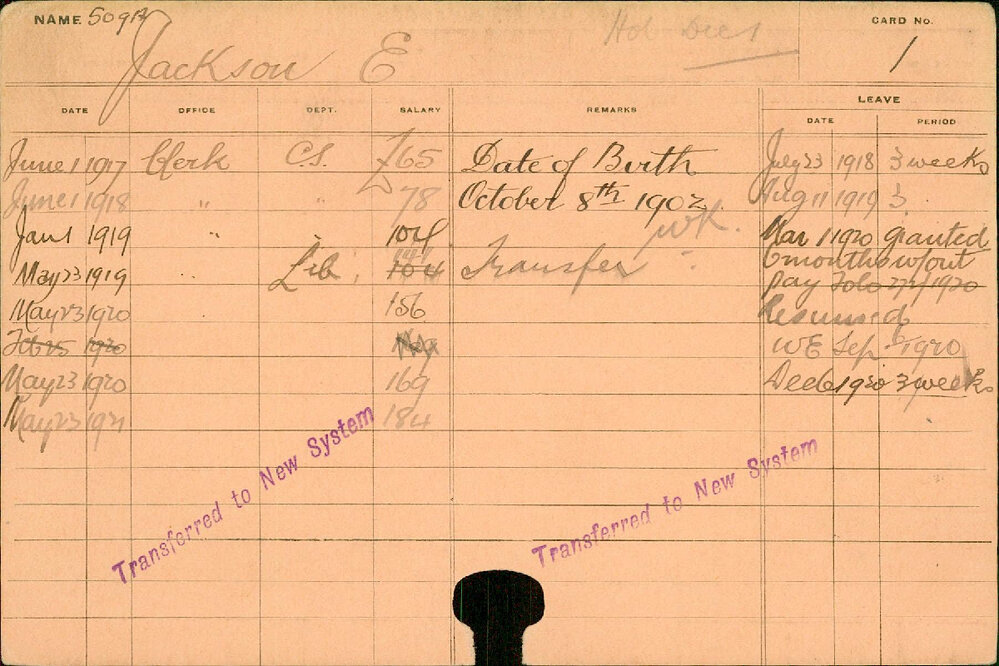 NAME 509A Hol Dec 1 CARD No.
Jackson E 1
DATE OFFICE DEPT. SALARY REMARKS LEAVE
DATE PERIOD
June 1 1917 Clerk C.S. £65 Date of Birth July 23 1918 3 weeks
June 1 1918 " " 78 October 8th 1902 Aug 11 1919 3
Jan 1 1919 " 104 WK. Mar 1 1920 granted
May 23 1919 " Lib. 104 Transfer 6 months w/out
May 23 1920 156 pay 1920
Feb 25 1920 Resumed
WE Sep 1920
May 23 1920 169 Dec 6 1920 3 weeks
May 23 1921 184
Transferred to New System
Transferred to New System